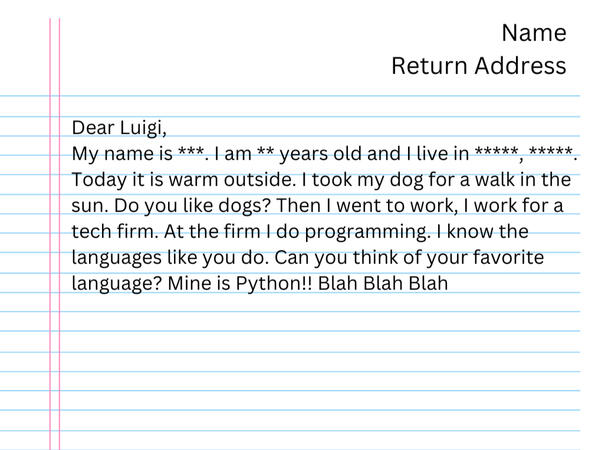 Name
Return Address
Dear Luigi,
My name is ***. I am ** years old and I live in *****, *****.
Today it is warm outside. I took my dog for a walk in the
sun. Do you like dogs? Then I went to work, I work for a
tech firm. At the firm I do programming. I know the
languages like you do. Can you think of your favorite
language? Mine is Python!! Blah Blah Blah